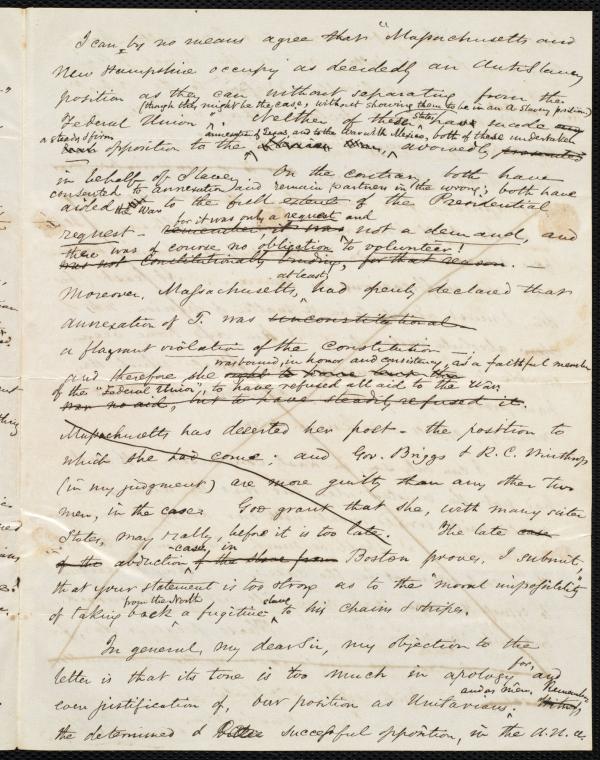 I can by no means agree that "Massachusetts and
New Hampshire occupy as decidedly an AntiSlavery
position as they can without separating from the
(though this might be the case, without showing them to be in an A. Slavery position)
Federal Union." Neither of these States has made
a steady & firm opposition to the annexation of Texas, and to the War with Mexico, both of these undertaken avowedly
in behalf of Slavery. On the contrary, both have
consented to annexation and remain partners in the wrong; both have
aided the War to the full extent of the Presidential
request - for it was only a request and not a demand, and
there was of course no obligation to volunteer!
was not Constitutionally binding, for that reason. -
Moreover, Massachusetts, at least, had openly declared that
annexation of T. was unconstitutional
a flagrant violation of the Constitution -
and therefore she was bound, in honor and consistency, as a faithful member
of the "Federal Union", to have refused all aid to the War.
no aid, but to have steadily refused it.
Massachusetts has deserted her post - the position to
which she had come; and Gov. Briggs & R. C. Winthrop
(in my judgment) are more guilty than any other two
men, in the case. God grant that she, with many sister
States, may rally, before it is too late. The late case
of the abduction case, in of the slave from Boston proves, I submit,
that your statement is too strong as to the "moral impossibility"
of taking back from the North a fugitive slave to his chains & stripes.
In general, my dear Sir, my objection to the
letter is that its tone is too much in apology for, and
even justification of, our position as Unitarians, and as men. Remember
the determined & successful opposition, in the A. U. A.